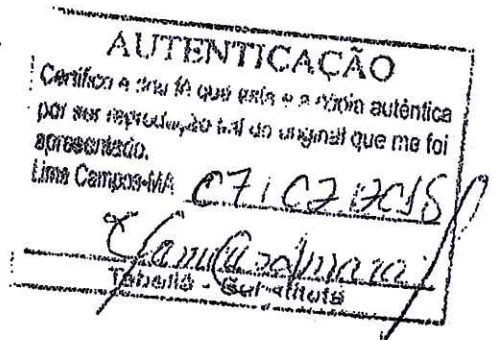 AUTENTICAÇÃO
Certifico e dou fé que esta e a cópia autêntica
por ser reprodução fiel do original que me foi
apresentado.
Lima Campos-MA
Tabeliã - Substituta